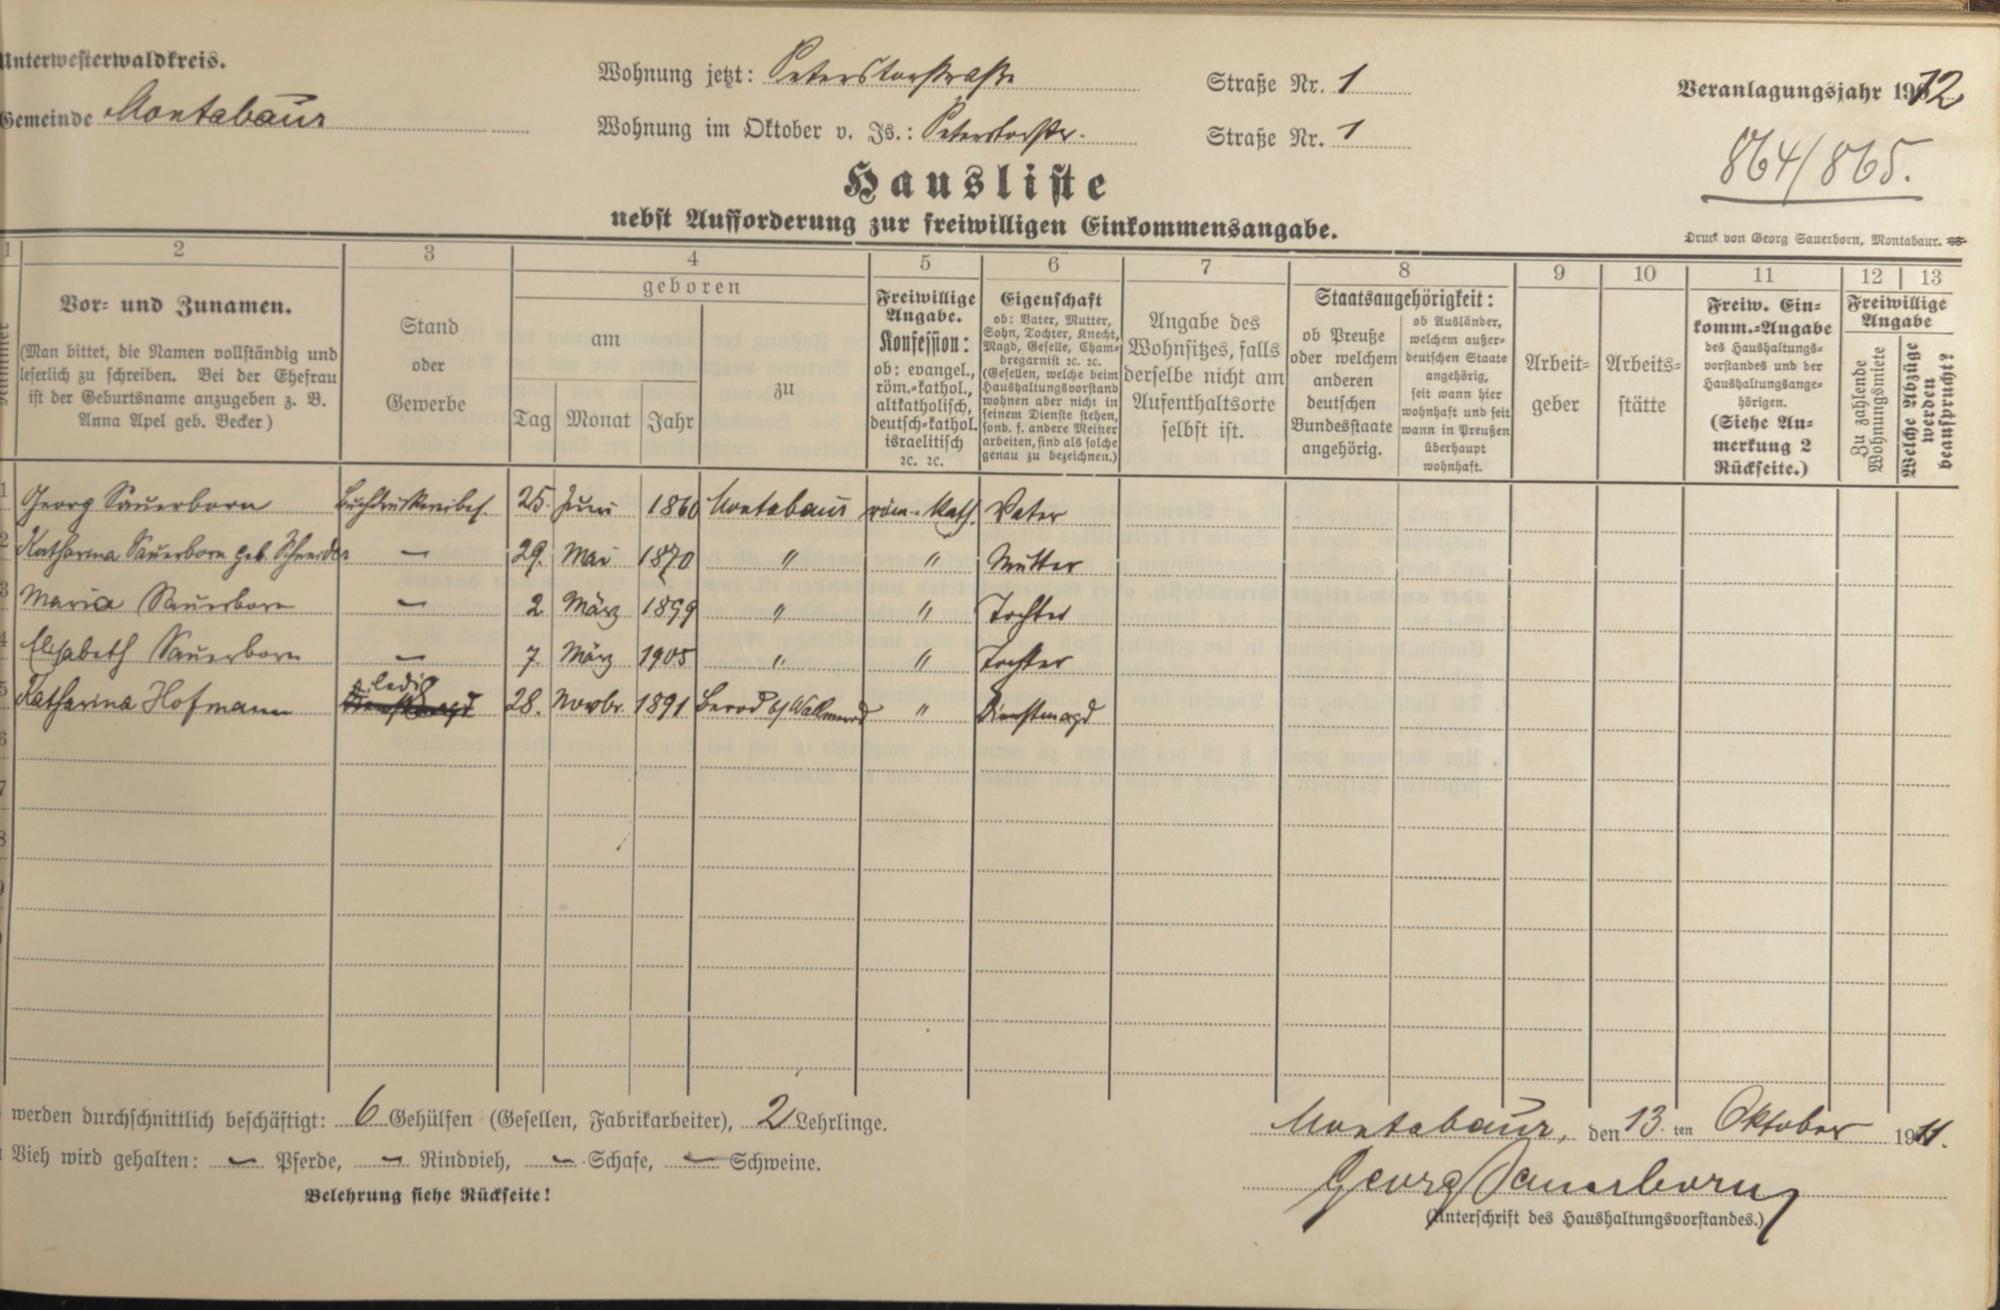 Unterwesterwaldkreis.
Gemeinde Montabaur
Wohnung jetzt: Peterstorstraße Straße Nr. 1
Wohnung im Oktober v. Js.: Peterstorstr. Straße Nr. 1
Veranlagungsjahr 1912
864/865.
Hausliste
nebst Aufforderung zur freiwilligen Einkommensangabe.
Druck von Georg Sauerborn, Montabaur.
1 2 3 4 5 6 7 8 9 10 11 12 13
Nummer
Vor- und Zunamen.
(Man bittet, die Namen vollständig und
leserlich zu schreiben. Bei der Ehefrau
ist der Geburtsname anzugeben z. B.
Anna Apel geb. Becker)
Stand
oder
Gewerbe
geboren
am
Tag Monat Jahr
zu
Freiwillige
Angabe.
Konfession:
ob: evangel.,
röm.-kathol.,
altkatholisch,
deutsch-kathol.
israelitisch
ꝛc. ꝛc.
Eigenschaft
ob: Vater, Mutter,
Sohn, Tochter, Knecht,
Magd, Geselle, Cham-
bregarnist ꝛc. ꝛc.
(Gesellen, welche beim
Haushaltungsvorstand
wohnen aber nicht in
seinem Dienste stehen,
sond. f. andere Meister
arbeiten, sind als solche
genau zu bezeichnen.)
Angabe des
Wohnsitzes, falls
derselbe nicht am
Aufenthaltsorte
selbst ist.
Staatsangehörigkeit:
ob Preuße
oder welchem
anderen
deutschen
Bundesstaate
angehörig.
ob Ausländer,
welchem außer-
deutschen Staate
angehörig,
seit wann hier
wohnhaft und seit
wann in Preußen
überhaupt
wohnhaft.
Arbeit-
geber
Arbeits-
stätte
Freiw. Ein-
komm.-Angabe
des Haushaltungs-
vorstandes und der
Haushaltungsange-
hörigen.
(Siehe An-
merkung 2
Rückseite.)
Freiwillige
Angabe
Zu zahlende
Wohnungsmiete
Welche Abzüge
werden
beansprucht?
1 Georg Sauerborn Buchdruckereibes. 25. Juni 1860 Montabaur röm.-kath. Vater
2 Katharina Sauerborn geb. Schneider — 29. Mai 1870 " " Mutter
3 Maria Sauerborn — 2 März 1899 " " Tochter
4 Elisabeth Sauerborn — 7. März 1905 " " Tochter
5 Katharina Hofmann ledig Dienstmagd 28. Novbr. 1891 Berod b/ Wallmerod " Dienstmagd
6
7
8
9
werden durchschnittlich beschäftigt: 6 Gehülfen (Gesellen, Fabrikarbeiter), 2 Lehrlinge.
Vieh wird gehalten: — Pferde, — Rindvieh, — Schafe, — Schweine.
Belehrung siehe Rückseite!
Montabaur, den 13. ten Oktober 1911.
Georg Sauerborn
(Unterschrift des Haushaltungsvorstandes.)